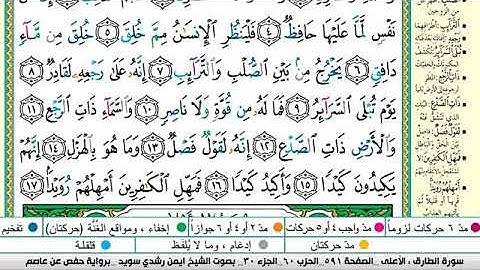 نَفْسٍ لَّمَّا عَلَيْهَا حَافِظٌ ٤ فَلْيَنظُرِ ٱلْإِنسَٰنُ مِمَّ خُلِقَ ٥ خُلِقَ مِن مَّآءٍ
دَافِقٍ ٦ يَخْرُجُ مِنۢ بَيْنِ ٱلصُّلْبِ وَٱلتَّرَآئِبِ ٧ إِنَّهُۥ عَلَىٰ رَجْعِهِۦ لَقَادِرٌ ٨
يَوْمَ تُبْلَى ٱلسَّرَآئِرُ ٩ فَمَا لَهُۥ مِن قُوَّةٍ وَلَا نَاصِرٍ ١٠ وَٱلسَّمَآءِ ذَاتِ ٱلرَّجْعِ ١١
وَٱلْأَرْضِ ذَاتِ ٱلصَّدْعِ ١٢ إِنَّهُۥ لَقَوْلٌ فَصْلٌ ١٣ وَمَا هُوَ بِٱلْهَزْلِ ١٤ إِنَّهُمْ
يَكِيدُونَ كَيْدًا ١٥ وَأَكِيدُ كَيْدًا ١٦ فَمَهِّلِ ٱلْكَٰفِرِينَ أَمْهِلْهُمْ رُوَيْدًۢا ١٧
مدّ ٦ حركات لزوماً مدّ واجب ٤ أو ٥ حركات مدّ ٢ أو ٤ أو ٦ جوازاً إخفاء ، ومواقع الغُنَّة (حركتان) تفخيم
مدّ حركتان إدغام ، وما لا يُلفظ قلقلة
سورة الطارق ، الأعلى _ الصفحة ٥٩١ _ الحزب ٦٠ _ الجزء ٣٠ _ بصوت الشيخ أيمن رشدي سويد _ برواية حفص عن عاصم